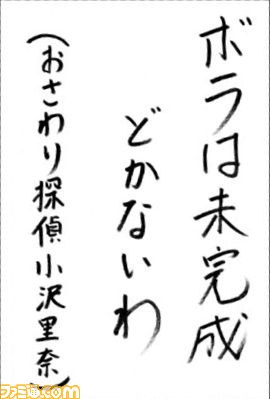 ボラは未完成
どかないわ
（おさわり探偵小沢里奈）
ファミ通.com